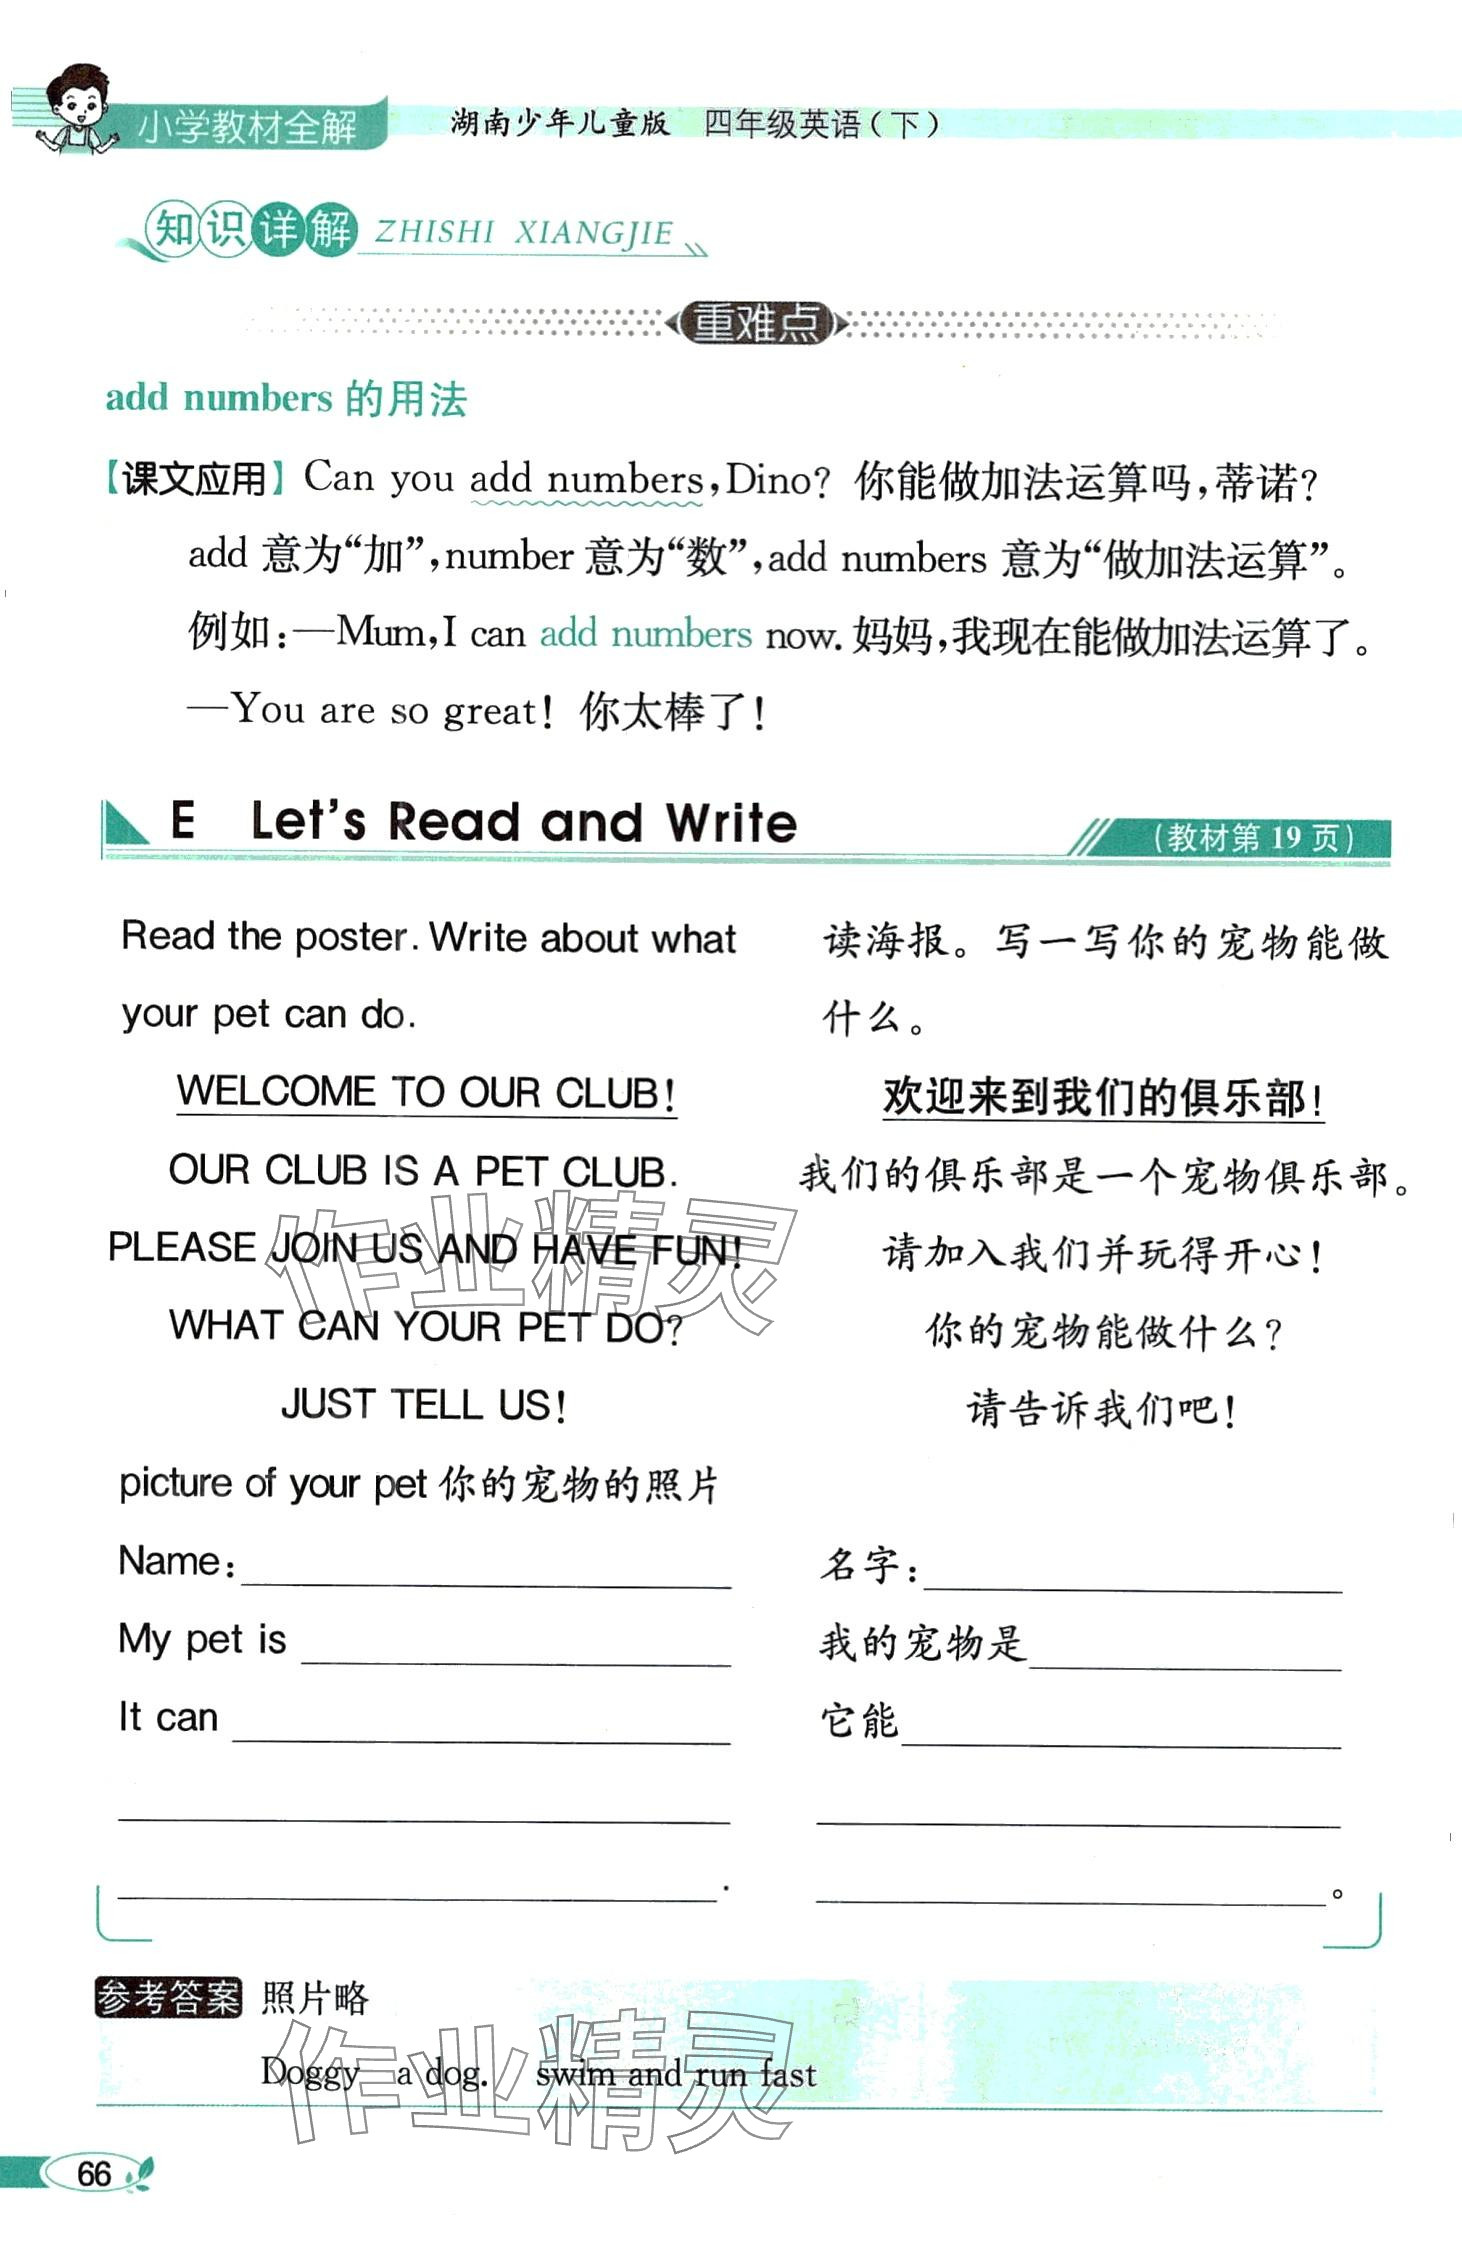 小学教材全解 湖南少年儿童版 四年级英语(下)
知识详解 ZHISHI XIANGJIE
重难点
add numbers 的用法
【课文应用】Can you add numbers,Dino? 你能做加法运算吗,蒂诺?
add 意为“加”,number 意为“数”,add numbers 意为“做加法运算”。
例如:—Mum,I can add numbers now. 妈妈,我现在能做加法运算了。
—You are so great! 你太棒了!
E Let's Read and Write (教材第 19 页)
Read the poster. Write about what your pet can do.
读海报。写一写你的宠物能做什么。
WELCOME TO OUR CLUB! 欢迎来到我们的俱乐部!
OUR CLUB IS A PET CLUB. 我们的俱乐部是一个宠物俱乐部。
PLEASE JOIN US AND HAVE FUN! 请加入我们并玩得开心!
WHAT CAN YOUR PET DO? 你的宠物能做什么?
JUST TELL US! 请告诉我们吧!
picture of your pet 你的宠物的照片
Name: 名字:
My pet is 我的宠物是
It can 它能
. 。
参考答案 照片略
Doggy a dog. swim and run fast
66
作业精灵
作业精灵